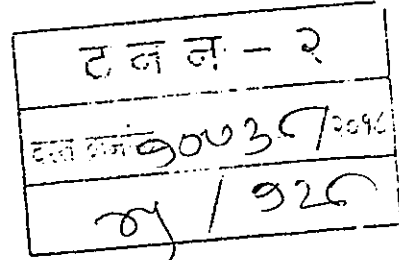 ट न न - २
दस्त क्रमांक १०७३८/२०१८
/ १२८